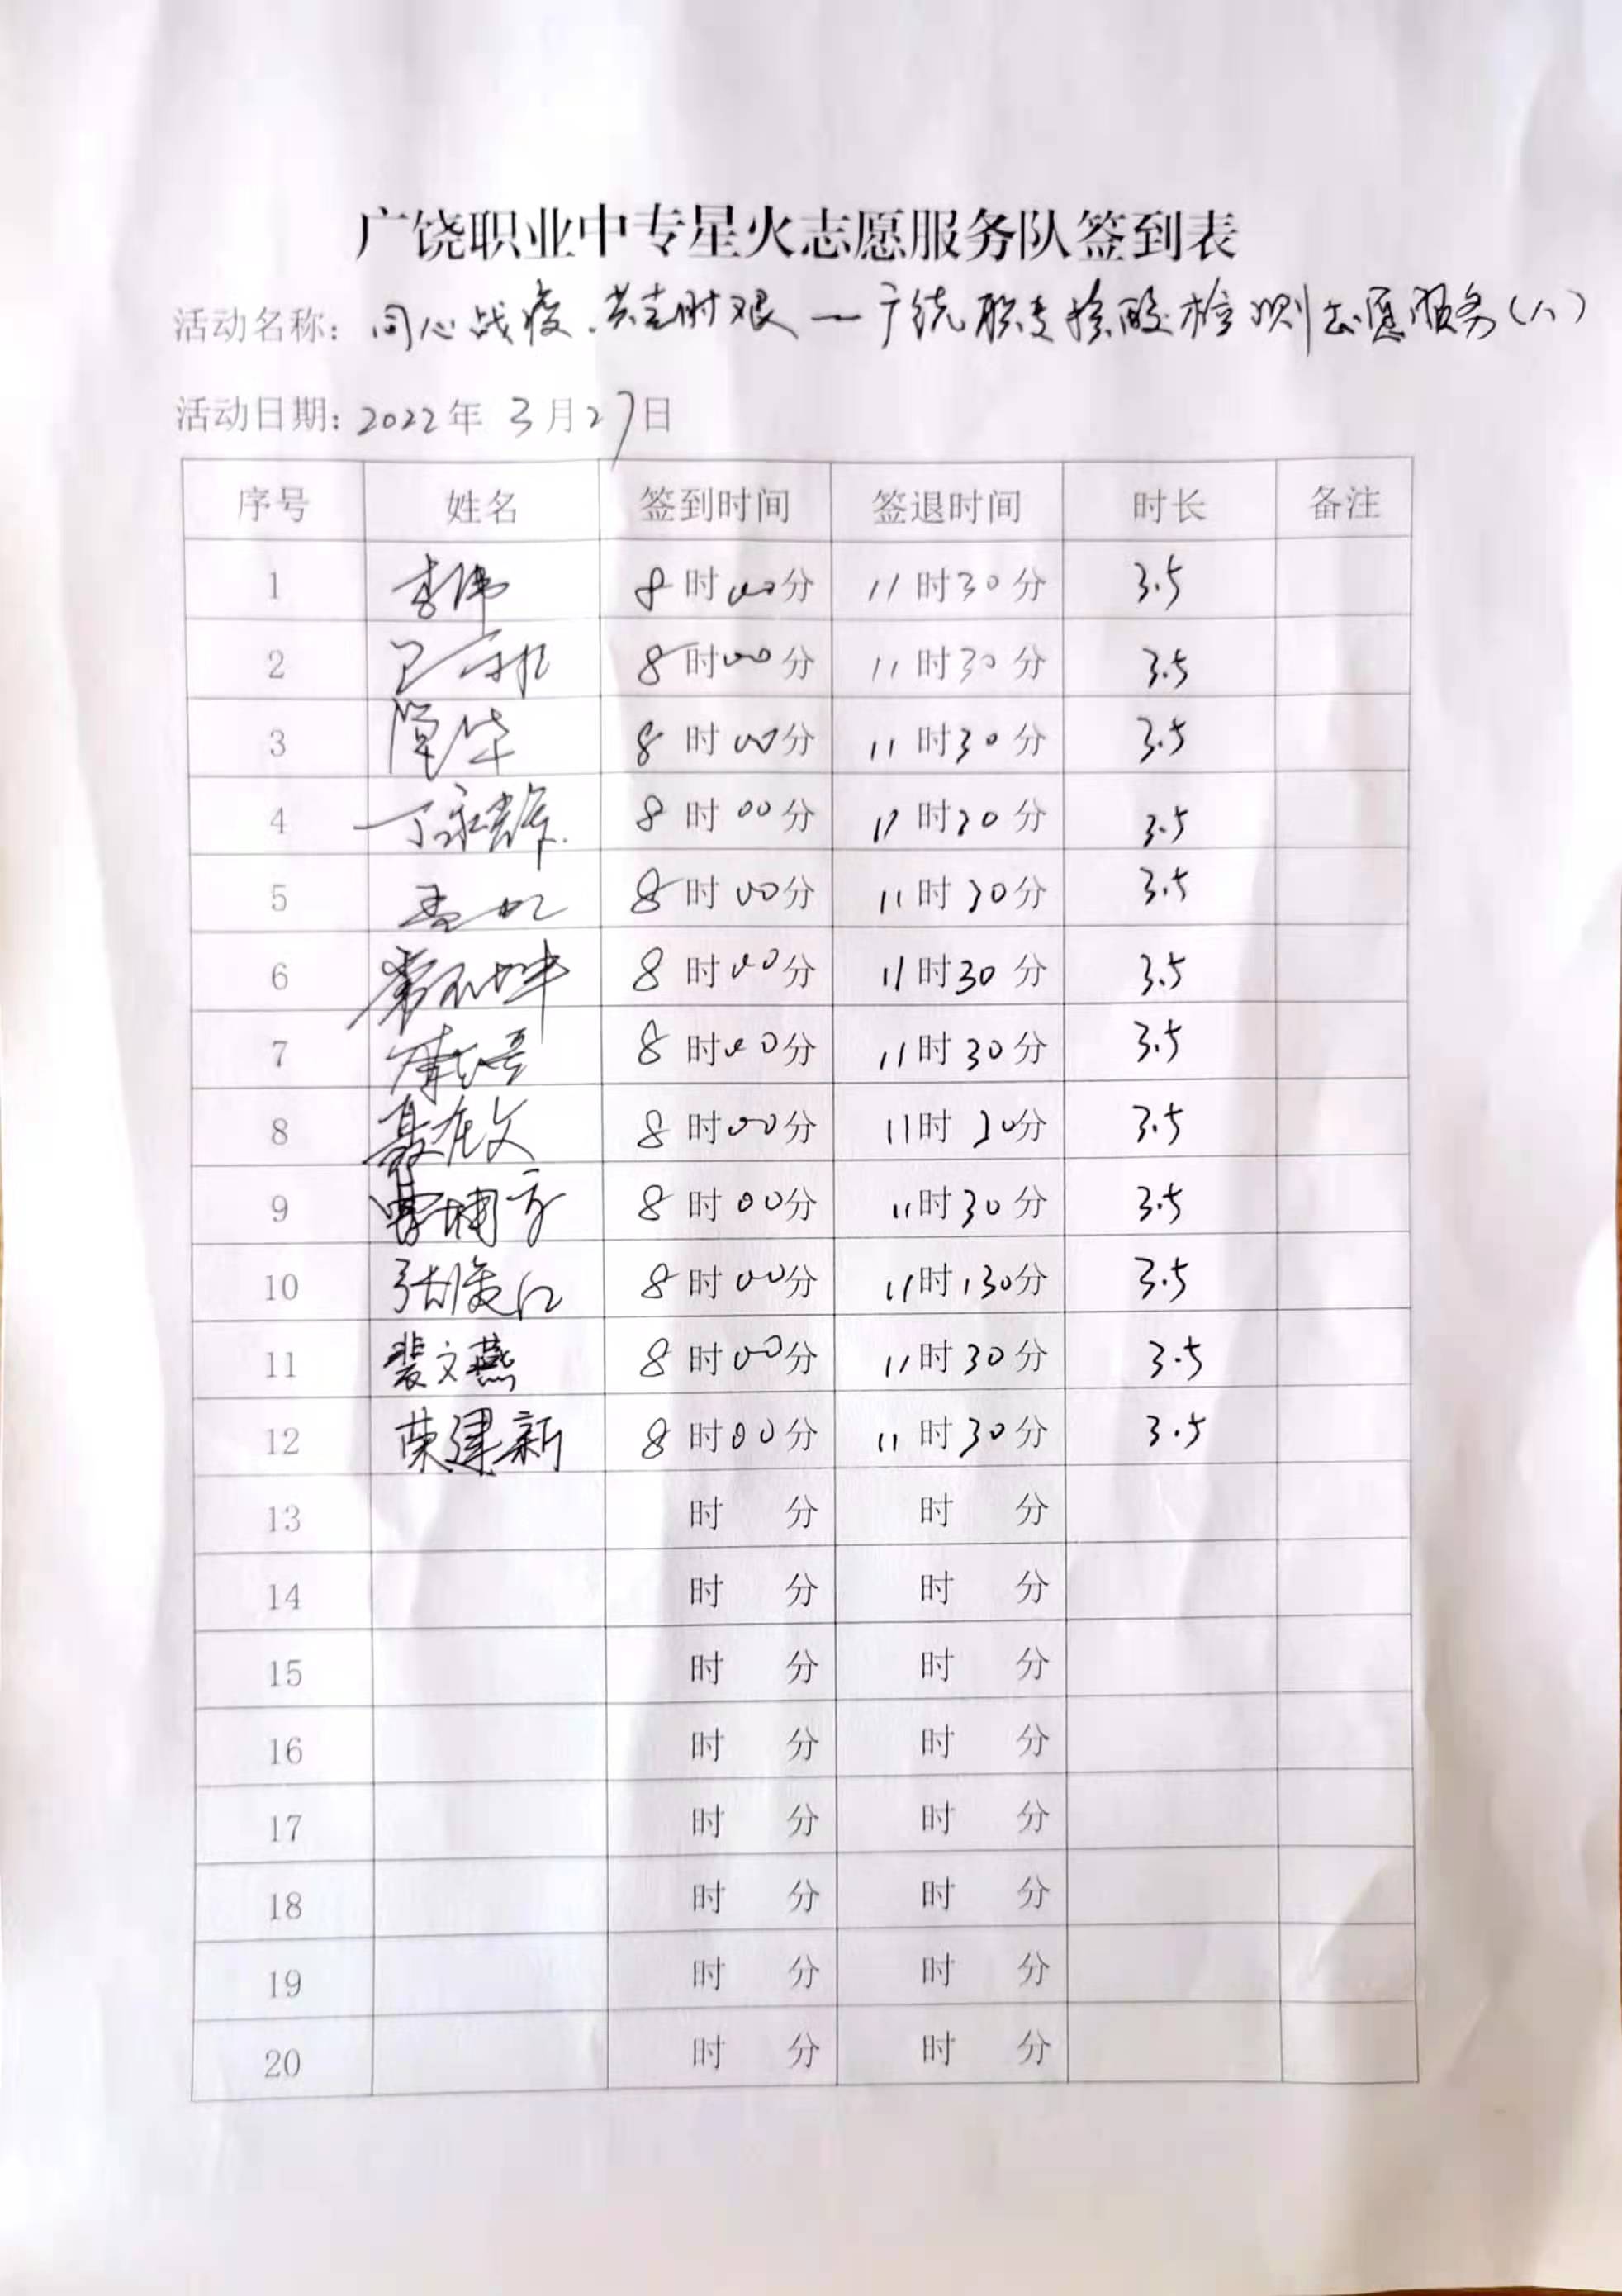 广饶职业中专星火志愿服务队签到表
活动名称: 同心战疫.共克时艰一广饶职专核酸检测志愿服务(八)
活动日期: 2022年 3月27日
序号 姓名 签到时间 签退时间 时长 备注
1 李伟 8时00分 11时30分 3.5
2 8时00分 11时30分 3.5
3 8时00分 11时30分 3.5
4 8时00分 11时30分 3.5
5 8时00分 11时30分 3.5
6 8时00分 11时30分 3.5
7 8时00分 11时30分 3.5
8 聂在文 8时00分 11时30分 3.5
9 8时00分 11时30分 3.5
10 张俊江 8时00分 11时30分 3.5
11 裴文燕 8时00分 11时30分 3.5
12 荣建新 8时00分 11时30分 3.5
13 时 分 时 分
14 时 分 时 分
15 时 分 时 分
16 时 分 时 分
17 时 分 时 分
18 时 分 时 分
19 时 分 时 分
20 时 分 时 分